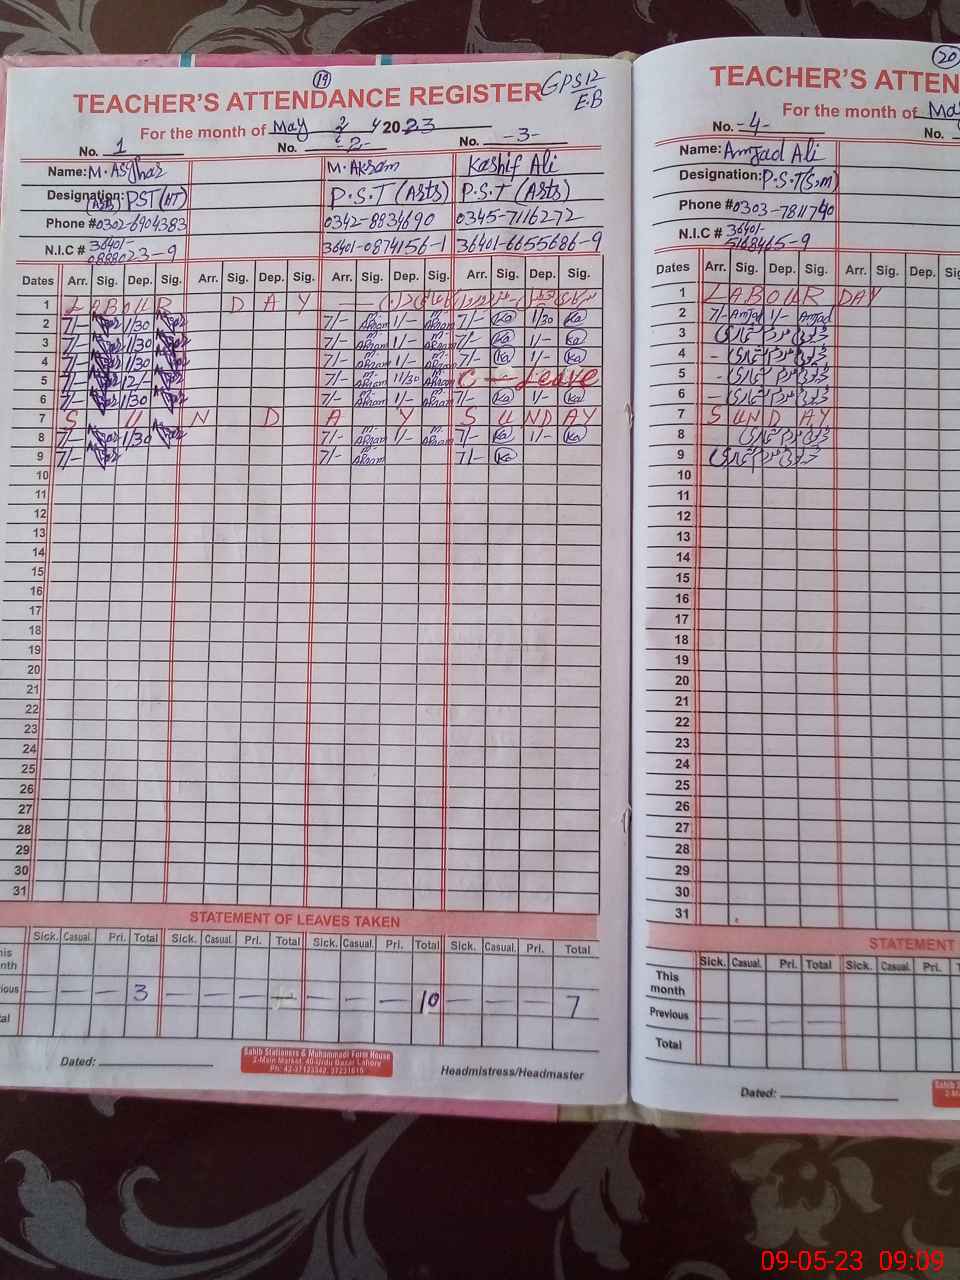 19
TEACHER'S ATTENDANCE REGISTER GPS 12
E.B
For the month of May 2023
No. 1 No. -2- No. -3-
Name: M. Asghar M. Akram Kashif Ali
Designation: PST P.S.T (Arts) P.S.T (Arts)
Phone # 0302-6904383 0342-8834690 0345-7116272
N.I.C # 36401-0888023-9 36401-0874156-1 36401-6655686-9
Dates Arr. Sig. Dep. Sig. Arr. Sig. Dep. Sig. Arr. Sig. Dep. Sig. Arr. Sig. Dep. Sig.
1 LABOUR DAY
2 7/- 1/30 7/- M. Akram 1/- M. Akram 7/- Ka 1/30 Ka
3 7/- 1/30 7/- M. Akram 1/- M. Akram 7/- Ka 1/- Ka
4 7/- 1/30 7/- M. Akram 1/- M. Akram 7/- Ka 1/- Ka
5 7/- 12/- 7/- M. Akram 11/30 M. Akram C — Leave
6 7/- 1/30 7/- M. Akram 1/- M. Akram 7/- Ka 1/- Ka
7 SUNDAY SUNDAY
8 7/- 1/30 7/- M. Akram 1/- M. Akram 7/- Ka 1/- Ka
9 7/- 7/- M. Akram 7/- Ka
10
11
12
13
14
15
16
17
18
19
20
21
22
23
24
25
26
27
28
29
30
31
STATEMENT OF LEAVES TAKEN
Sick. Casual. Pri. Total Sick. Casual. Pri. Total Sick. Casual. Pri. Total Sick. Casual. Pri. Total
his
nth
ious — — — 3 — — — — — — 10 — — — 7
tal
Dated:
Sahib Stationers & Muhammadi Form House
2-Main Market, 40-Urdu Bazar Lahore
Ph: 42-37123342, 37231615
Headmistress/Headmaster
20
TEACHER'S ATTEN
For the month of May
No. -4- No.
Name: Amjad Ali
Designation: P.S.T (S.m)
Phone # 0303-7811740
N.I.C # 36401-5168465-9
Dates Arr. Sig. Dep. Sig. Arr. Sig. Dep. Sig
1 LABOUR DAY
2 7/- Amjad 1/- Amjad
3
4
5
6
7 SUNDAY
8
9
10
11
12
13
14
15
16
17
18
19
20
21
22
23
24
25
26
27
28
29
30
31
STATEMENT
Sick. Casual. Pri. Total Sick. Casual. Pri. T
This
month
Previous — — — —
Total
Dated:
Sahib S
2-M
09-05-23 09:09